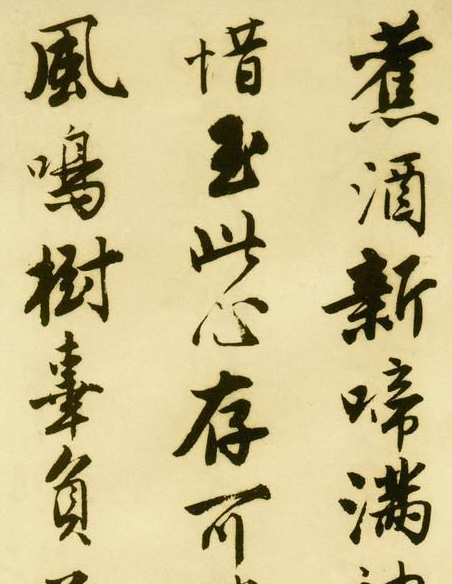 舊酒新啼滿
惜玉此心存可
風鳴樹辜負